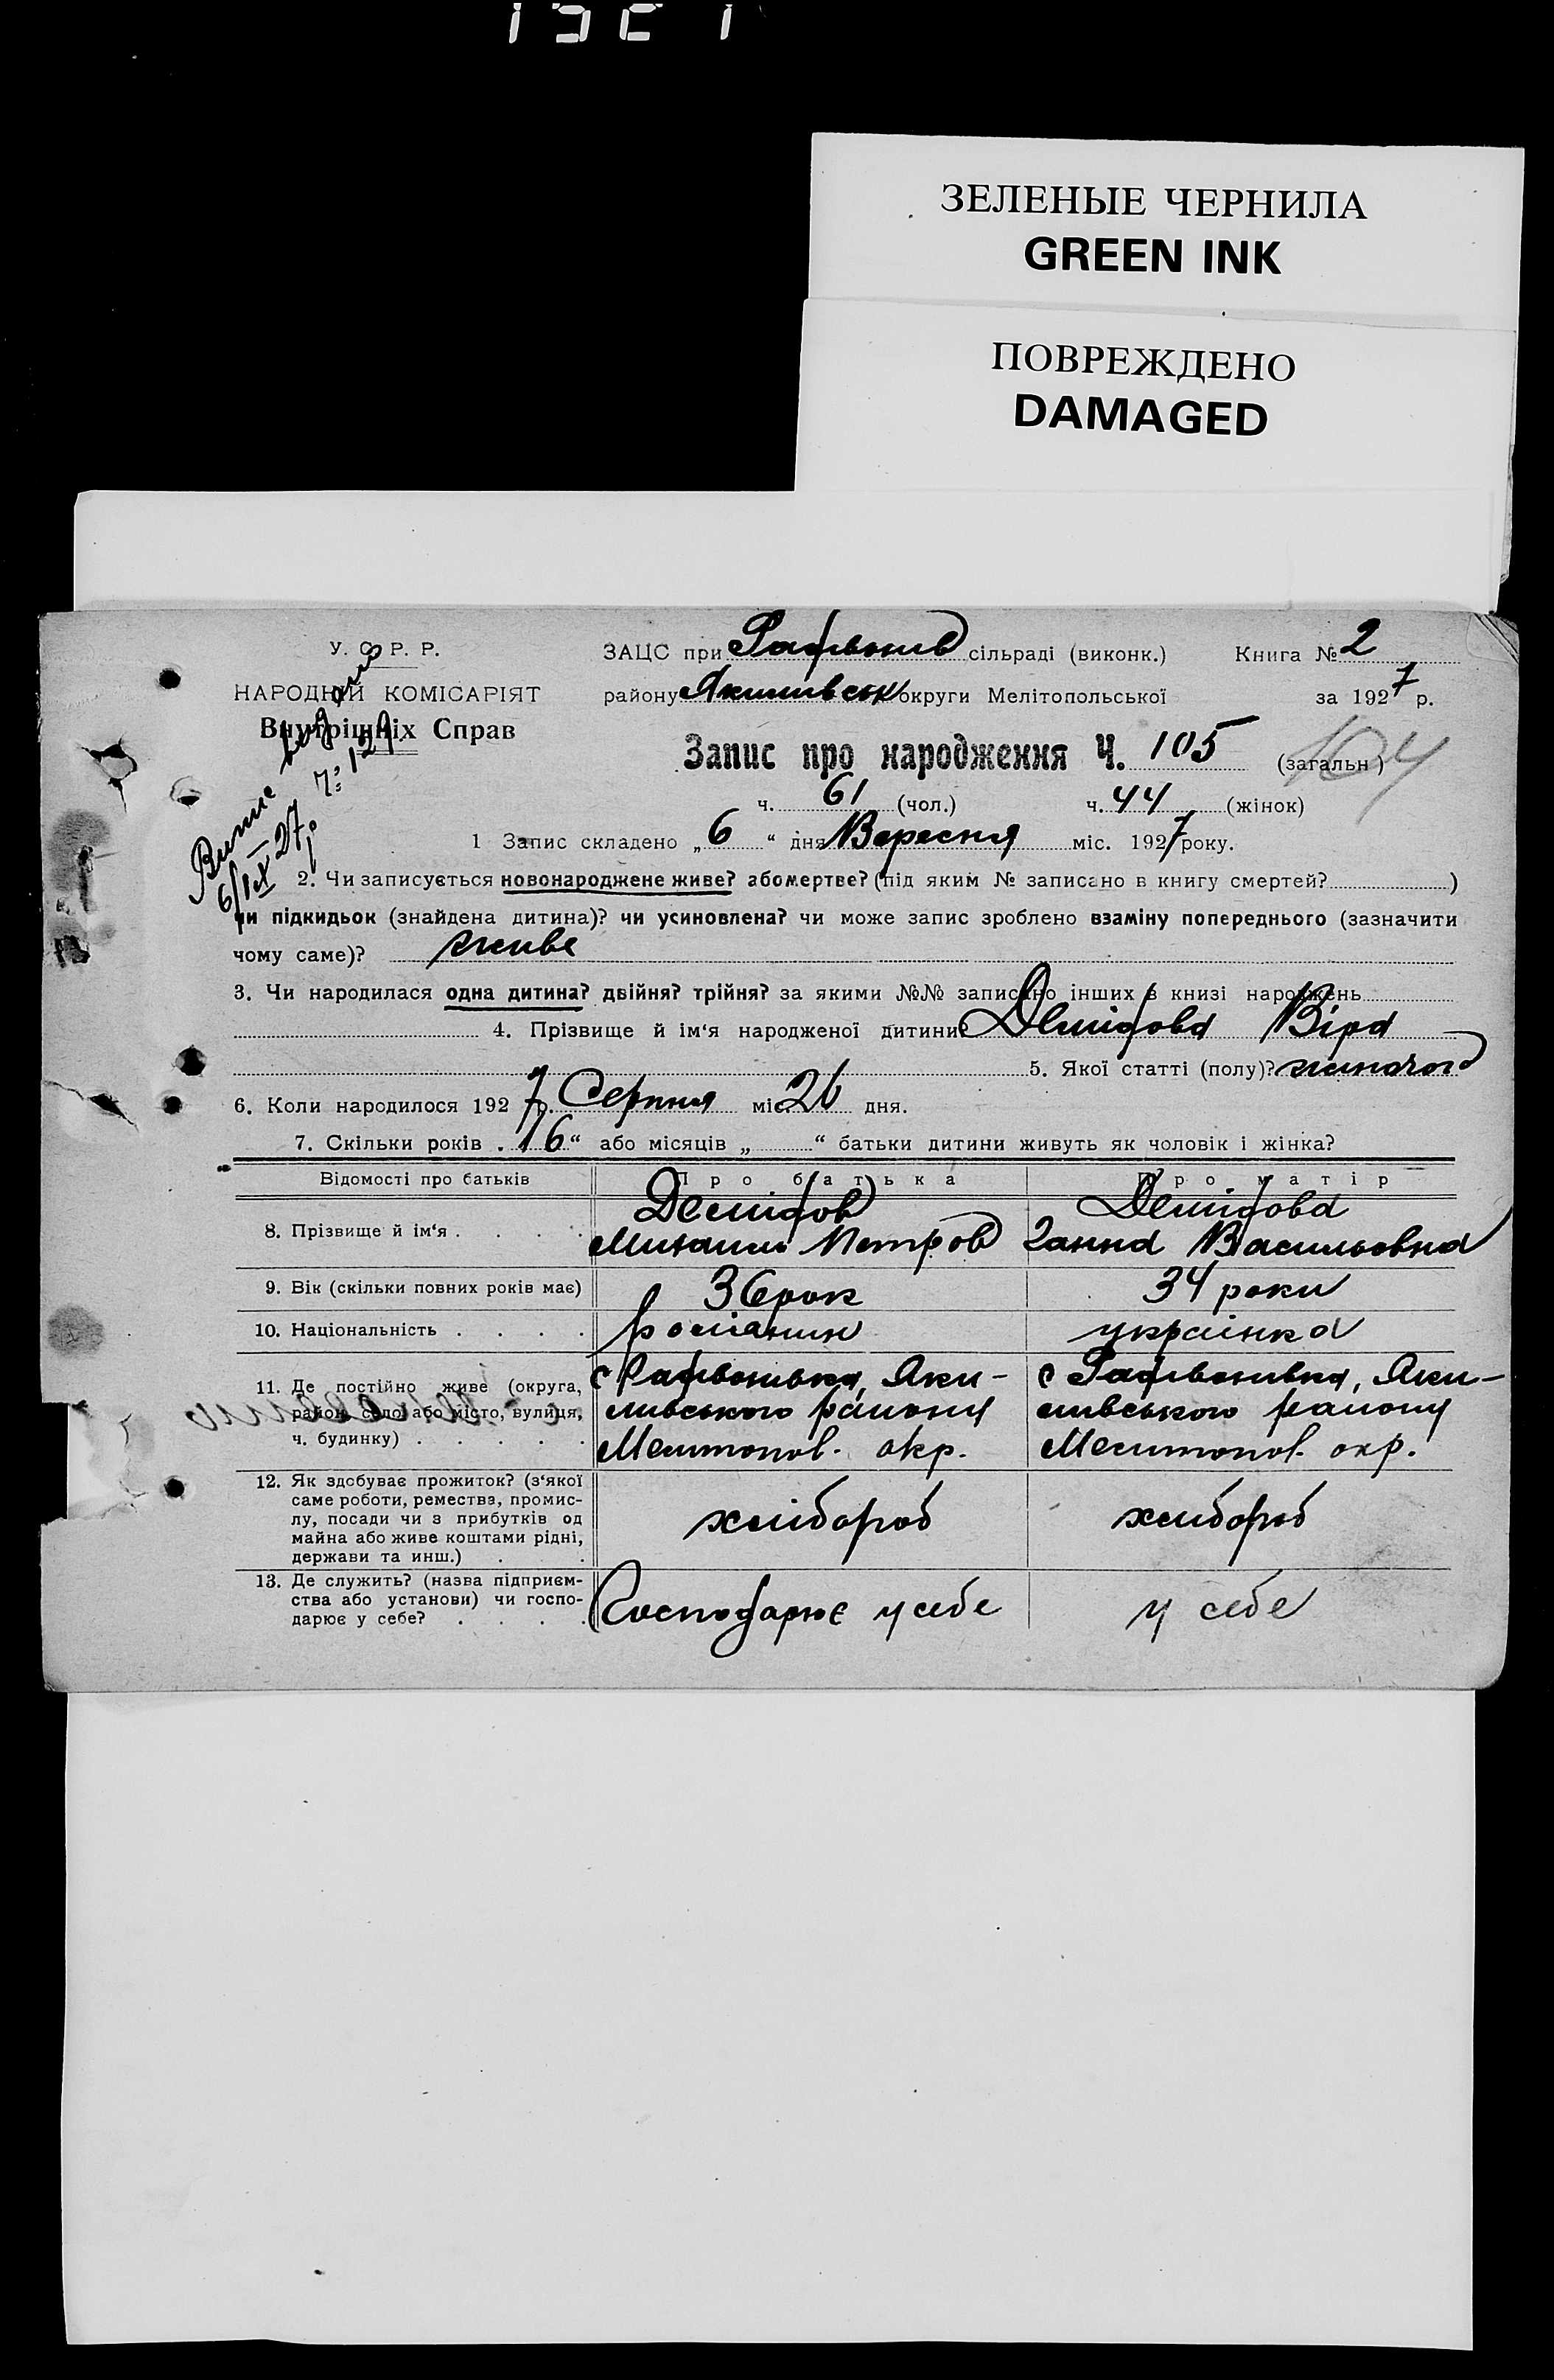 ЗЕЛЕНЫЕ ЧЕРНИЛА
GREEN INK
ПОВРЕЖДЕНО
DAMAGED
У. С. Р. Р.
НАРОДНІЙ КОМІСАРІЯТ
Внутрішніх Справ
Випис видано
6/IX 27 р. ч: 129
ЗАЦС при сільраді (виконк.) Книга № 2
району Якимівськ округи Мелітопольської за 1927 р.
Запис про народження Ч. 105 (загальн) 104
ч. 61 (чол.) ч. 44 (жінок)
1 Запис складено „6“ дня Вересня міс. 1927 року.
2. Чи записується новонароджене живе? або мертве? (під яким № записано в книгу смертей? )
чи підкидьок (знайдена дитина)? чи усиновлена? чи може запис зроблено взаміну попереднього (зазначити
чому саме)? живе
3. Чи народилася одна дитина? двійня? трійня? за якими №№ записано інших в книзі народжень
4. Прізвище й ім‘я народженої дитини? Демідова Віра
5. Якої статті (полу)? жіночого
6. Коли народилося 1927 р. Серпня міс. 26 дня.
7. Скільки років „16“ або місяців „ “ батьки дитини живуть як чоловік і жінка?
Відомості про батьків Про батька Про матір
8. Прізвище й ім‘я . . . . Демідов Демідова
Михаил Петров Ганна Васильовна
9. Вік (скільки повних років має) 36 рок 34 роки
10. Національність . . . . росіанин украінка
11. Де постійно живе (округа, с Радивонивка, Яки- с Радивонивка, Яки-
район, село або місто, вулиця, мивського району мивського району
ч. будинку) . . . . . Мелитопол. окр. Мелитопол. окр.
12. Як здобуває прожиток? (з‘якої
саме роботи, ремества, промис-
лу, посади чи з прибутків од хлібороб хлібороб
майна або живе коштами рідні,
держави та инш.) . .
13. Де служить? (назва підприєм-
ства або установи) чи госпо- Господарює у себе у себе
дарює у себе? . . . .